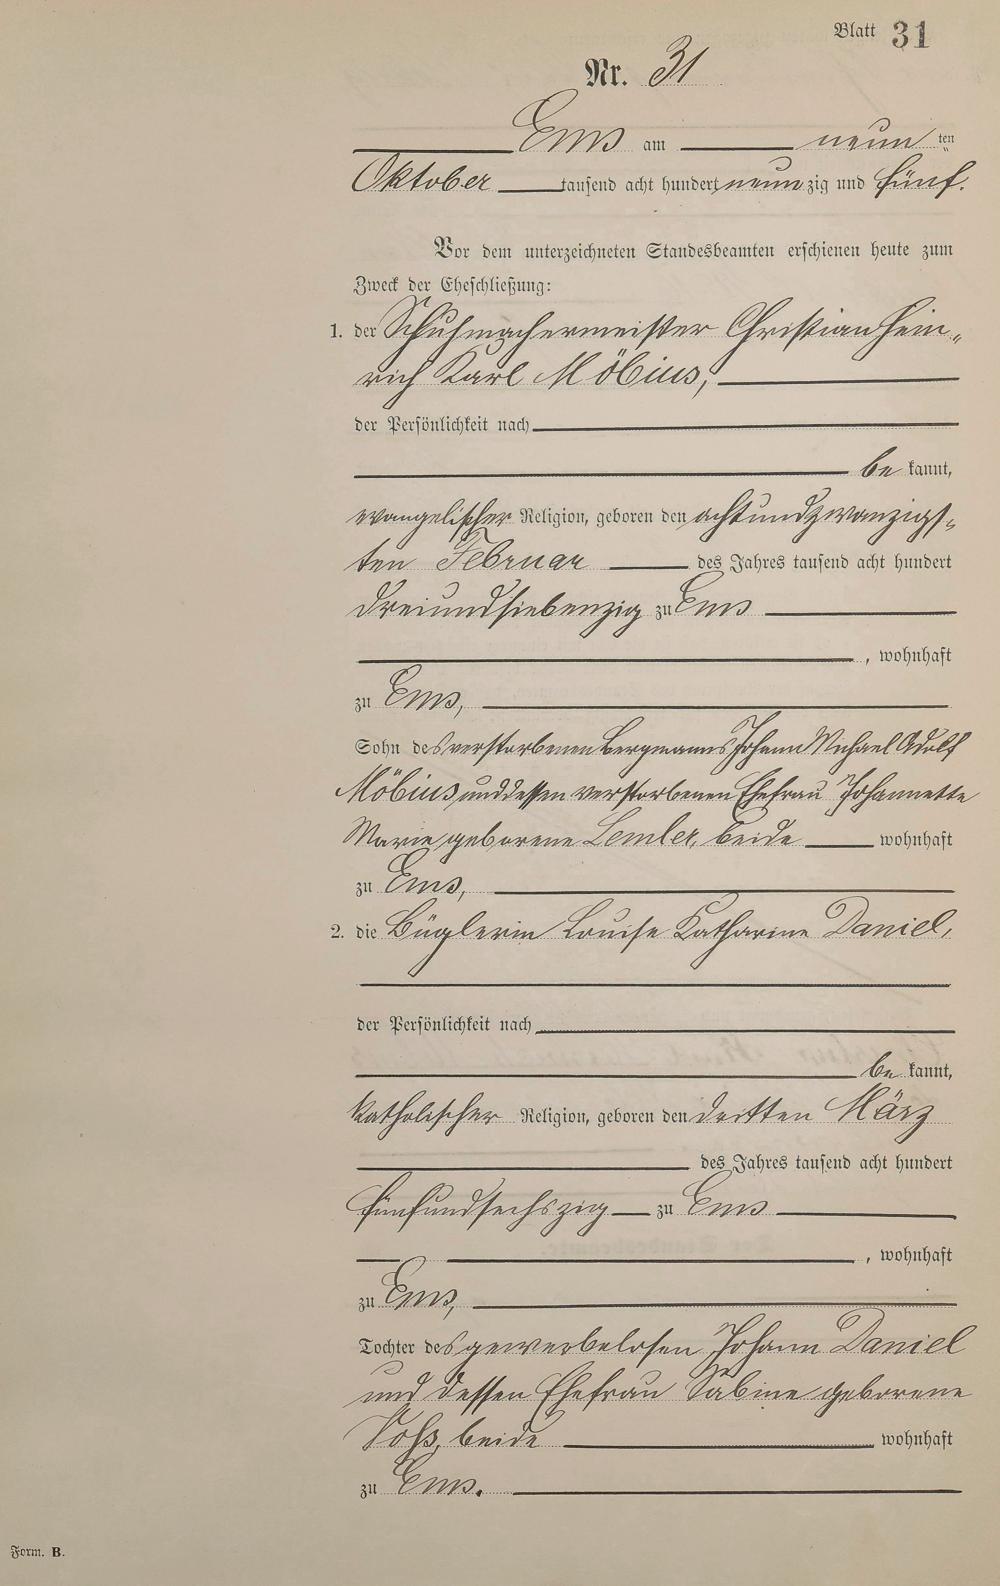 Blatt 31
Nr. 31
Ems am neunten
Oktober tausend acht hundert neunzig und fünf.
Vor dem unterzeichneten Standesbeamten erschienen heute zum
Zweck der Eheschließung:
1. der Schuhmachermeister Christian Hein-
rich Karl Möbius,
der Persönlichkeit nach
bekannt,
evangelischer Religion, geboren den achtundzwanzigs-
ten Februar des Jahres tausend acht hundert
dreiundsiebenzig zu Ems
, wohnhaft
zu Ems,
Sohn des verstorbenen Bergmanns Johann Michael Adolf
Möbius und dessen verstorbenen Ehefrau Johannette
Marie geborene Lemler, beide wohnhaft
zu Ems,
2. die Büglerin Louise Katharine Daniel,
der Persönlichkeit nach
bekannt,
katholischer Religion, geboren den dritten März
des Jahres tausend acht hundert
fünfundsechszig zu Ems
, wohnhaft
zu Ems,
Tochter des gewerbelosen Johann Daniel
und dessen Ehefrau Sabine geborene
Voß, beide wohnhaft
zu Ems.
Form. B.